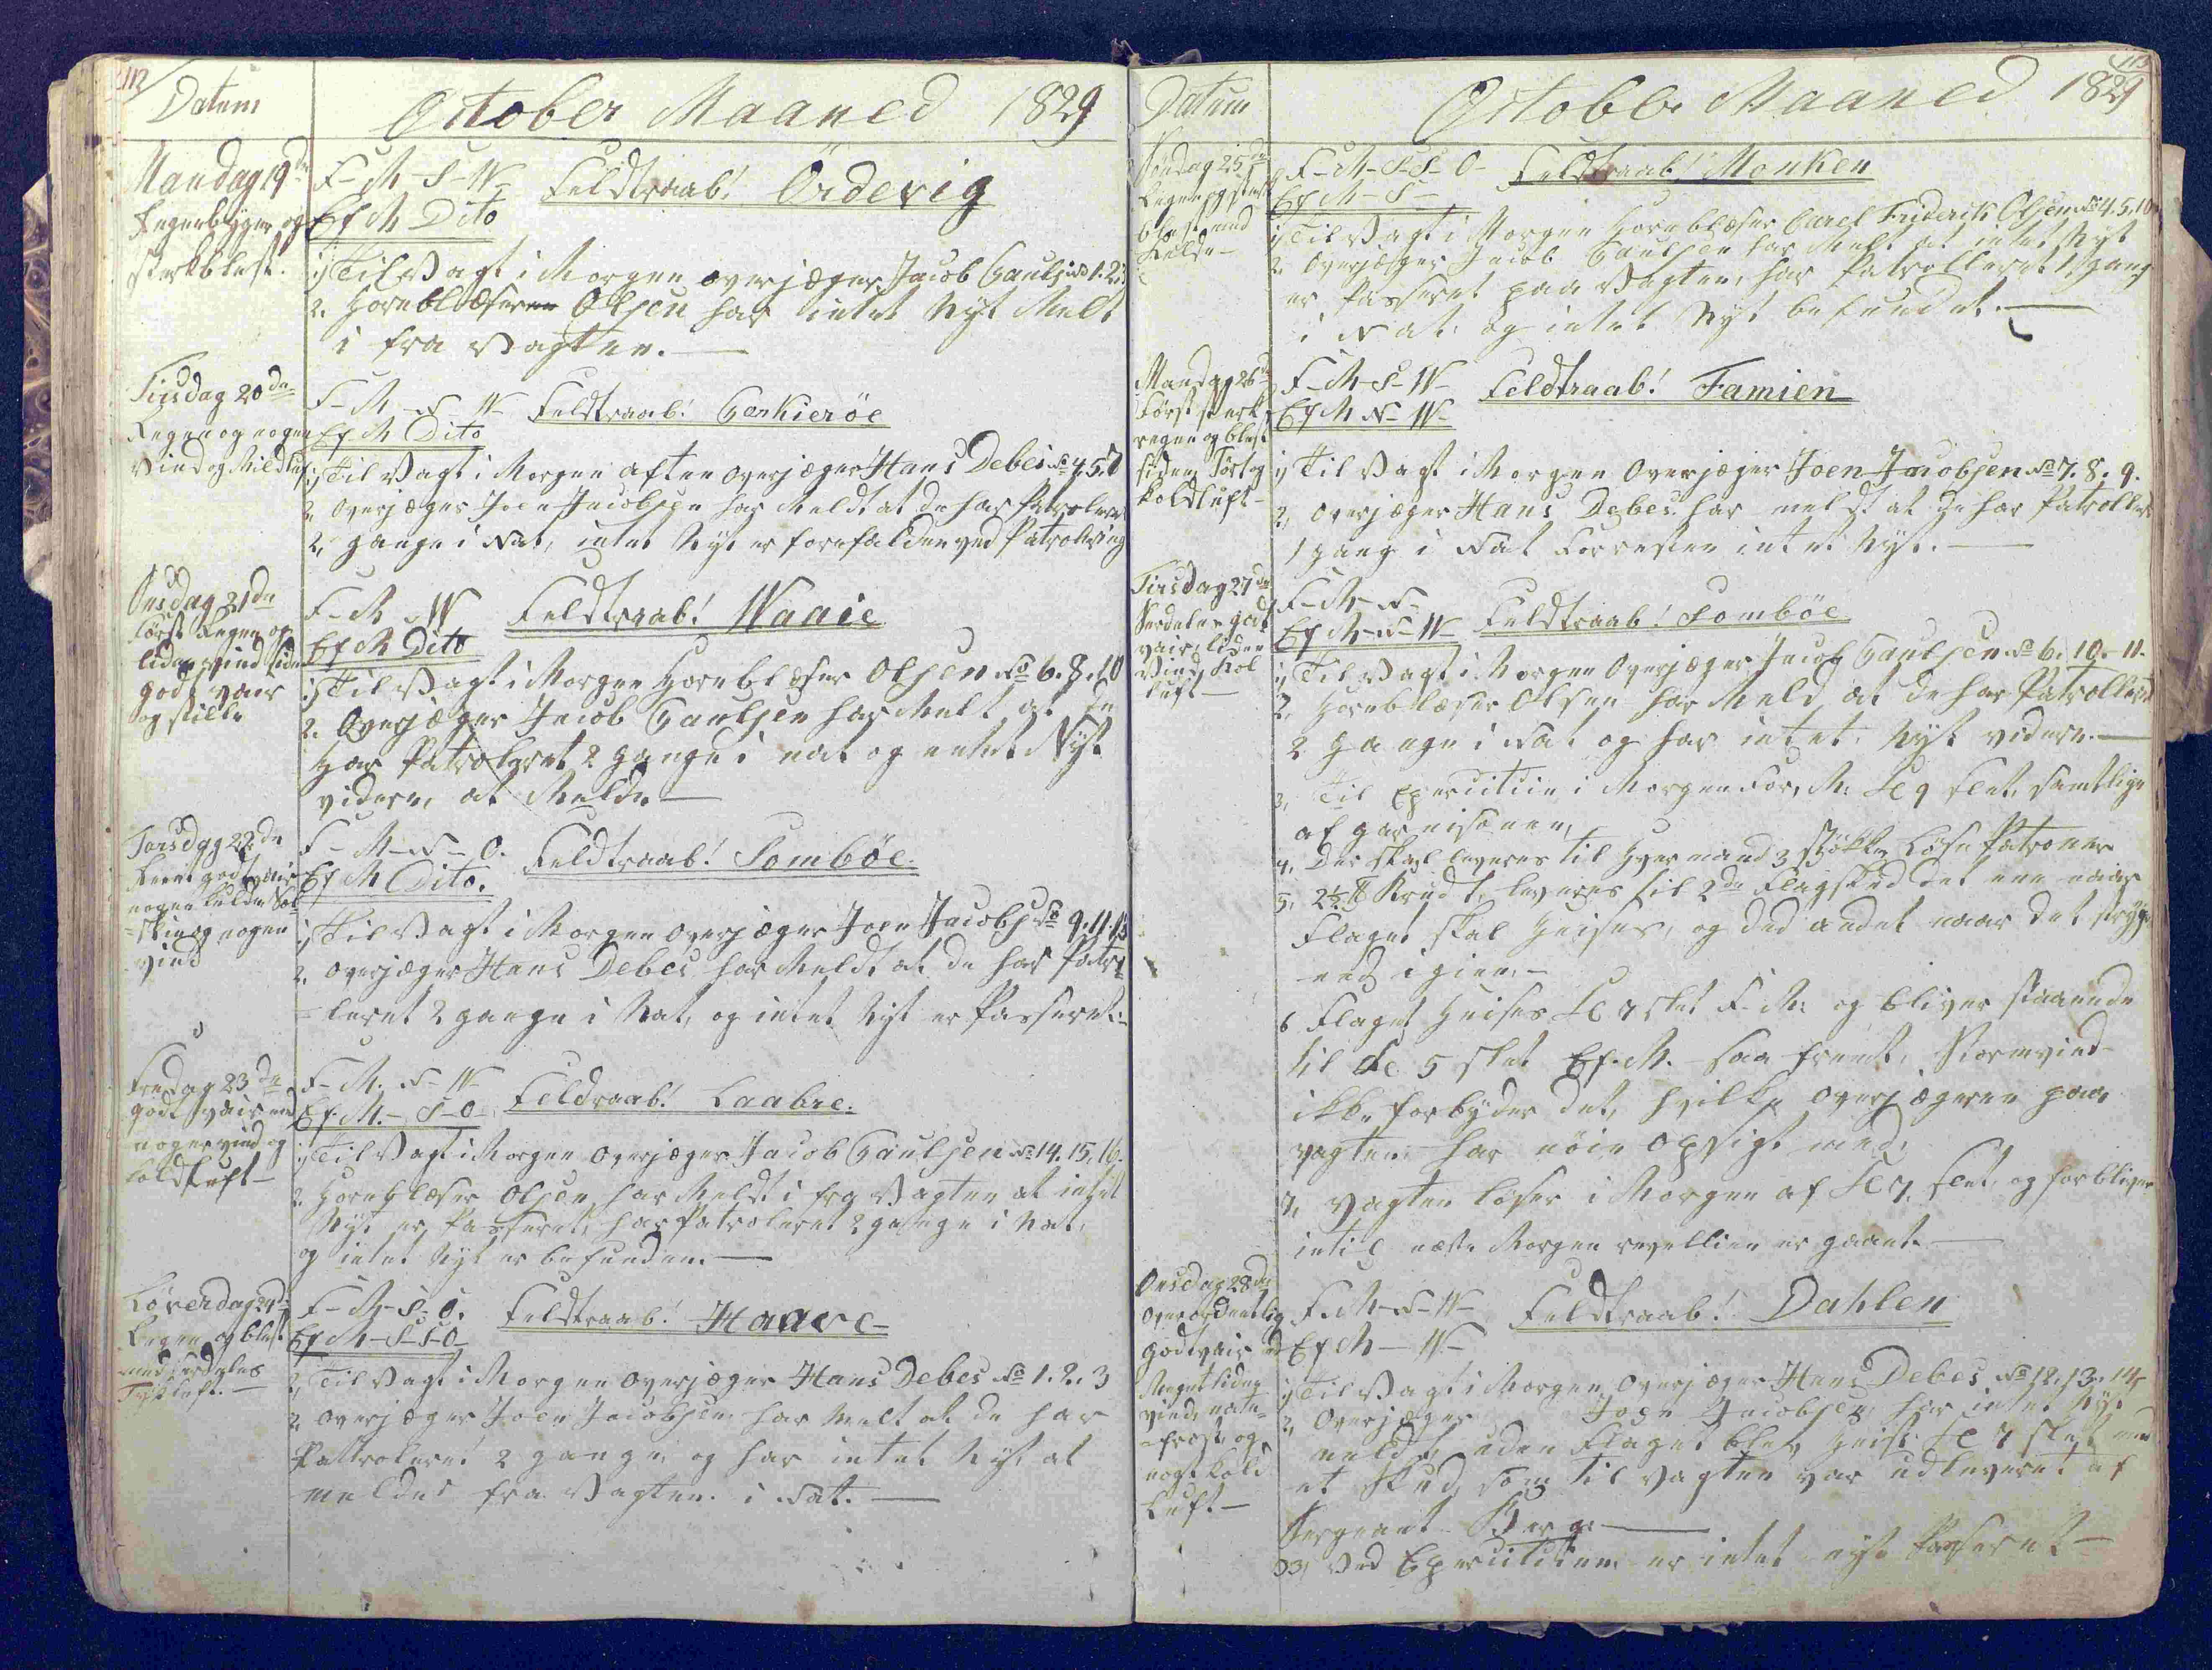 112
Datum
October Maaned 1829
Mandag 19de
Regenbyger og
sterk blest.
F-M-S-W-
Feldtraab! Örderig
Ef M Dito
1, Til Vagt i Morgen overjæger Jacob Pauls No 1. 2. 3
2. Hornblæseren Olsen har intet Nyt Melt
i fra Vagten.
Tiisdag 20de
Regen og nogen
Vind og Mild luft
F-M-N-W Feldtraab! Kierkierøe
Ef M Dito
1, Til Vagt i Morgen aften overjæger Hans Debes No 4 5. 7
2, overjæger Joen Jacobsen har Meldt at de har Patroleret
2, gange i Nat, intet Nyt er forefalden ved Patrolering
Onsdag 21de
først Regen og
liden vind siden
godt vair
og stille
F-M W Feldtraab! Waaie
Ef M Dito
1, Til Vagt i Morgen Hornblæser Olsen No 6. 8. 10
2. Overjæger Jacob Paulsen har Melt at de
har Patroleret 2 gange i nat og intet Nyt
videre, at Melde
Torsdag 22de
godt vair
nogen kulde Sol-
=skin og nogen
vind
F-M-N-O. Feldtraab! Sombøe.
Ef M Dito.
1, Til Vagt i Morgen overjæger Joen Jacobs No 9. 11. 13
2, overjæger Hans Debes har Meldt at de har Patro-
=leret 2 gange i Nat, og intet Nyt er Passeret.
Fredag 23de
godt vair med
nogen vind og
koldluft
F-M. N-W Feldraab! Laabre.
Ef. M.-S-O
1, Til Vagt i Morgen overjæger Jacob Paulsen No 14. 15, 16.
2, Hornblæser Olsen har Meldt i fra Vagten at intet
Nyt er Passeret, har Patroleret 2 gange i Nat,
og intet Nyt er befunden.
Löverdag 24de
Regen og blest
med
F-M-S-O. Feldtraab! Haare
Ef M-S-S-O
1, Til Vagt i Morgen overjæger Hans Debes No 1. 2. 3
2, overjæger Joen Jacobsen har Melt at de har
Pattroleret 2 gange og har intet Nyt at
meldes fra Vagten i Nat.
113
Datum
October Maaned 1829
Söndag 25de
Regen og sterk
blest med
Kulde
F-M-S-S-O- Feldtraab! Monken
Ef M-S-
1, Til Vagt i Morgen Hornblæser Carel Friderik Olsen No 4. 5, 10
2, Overjæger Jacob Paulsen har Melt at intet Nyt
er Passeret paa Vagten, har Patrolleret 1 gang
i Nat og intet Nyt befundet.
Mandag 26de
først sterk
regen og blest
siden Tört og
koldluft
F-M-S-W- Feldtraab! Famien
Ef M N-W-
1, Til Vagt i Morgen Overjæger Joen Jacobsen No 7. 8. 9.
2, Overjæger Hans Debes har meldt at de har Patrolleret
1 gang i Nat Forresten intet Nyt.
Tiisdag 27de
Serdeles god
vair, liden
Vind, Kol
luft
F-M-N- Feldtraab! Sombøe
Ef M-N-W-
1, Til Vagt i Morgen Overjæger Jacob Paulsen No 6. 10. 11.
2, Hornblæser Olsen har Meld, at de har Patrolleret
2 gange i Nat og har intet Nyt videre.
3, Til Exercitiie i Morgen For, M. Kl 9 slet, samtlige
af garnisonen,
4, Der skal leveres til hver mand 3 stökke løse Patroner
5, 2½ ℔ Krudt, leveres til 2de Flagskud det ene naar
Flaget skal Heises, og det andet naar det stryges
ned igien.
6 Flaget Heises Kl 7 slet F-M. og bliver staaende
til Kl 5 slet Ef. M. saa fremt, Stormvind
ikke forbyder det, hvilke overjægeren paa
vagten har nöie opsigt med,
7, Vagten löser i Morgen af Kl 7, slet, og forbliver
intil næste Morgen revellien er gaaet.
Onsdag 28de
Overordentlig
godt vair
Meget liden
vind, nat-
=frost og
noget Kold
Luft
F-M-N-W- Feldtraab! Dahlen
Ef M-W-
1, Til Vagt i Morgen Overjæger Hans Debes No 12. 13. 14
2, Overjæger Joen Jacobsen, har intet Nyt
meldt, uden Flaget blev Heist Kl 7 slet med
et Skud, som til Vagten var udleveret af
Sergeant Berg
3, Ved Exercititiien er intet nyt Passeret